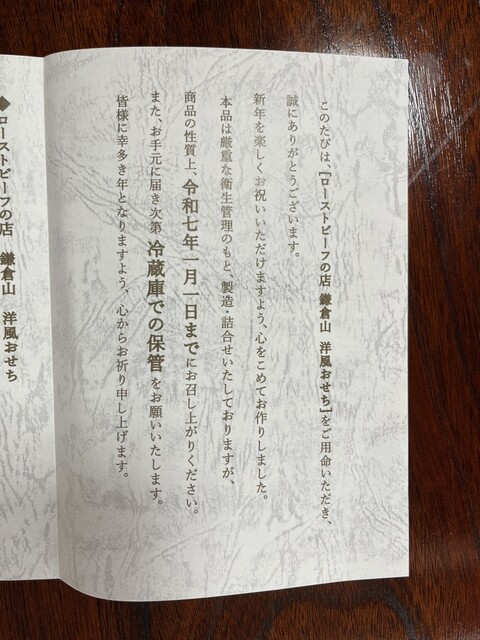 このたびは、【ローストビーフの店 鎌倉山 洋風おせち】をご用命いただき、
誠にありがとうございます。
新年を楽しくお祝いいただけますよう、心をこめてお作りしました。
本品は厳重な衛生管理のもと、製造・詰合せいたしておりますが、
商品の性質上、令和七年一月一日までにお召し上がりください。
また、お手元に届き次第 冷蔵庫での保管 をお願いいたします。
皆様に幸多き年となりますよう、心からお祈り申し上げます。
◆ローストビーフの店 鎌倉山 洋風おせち